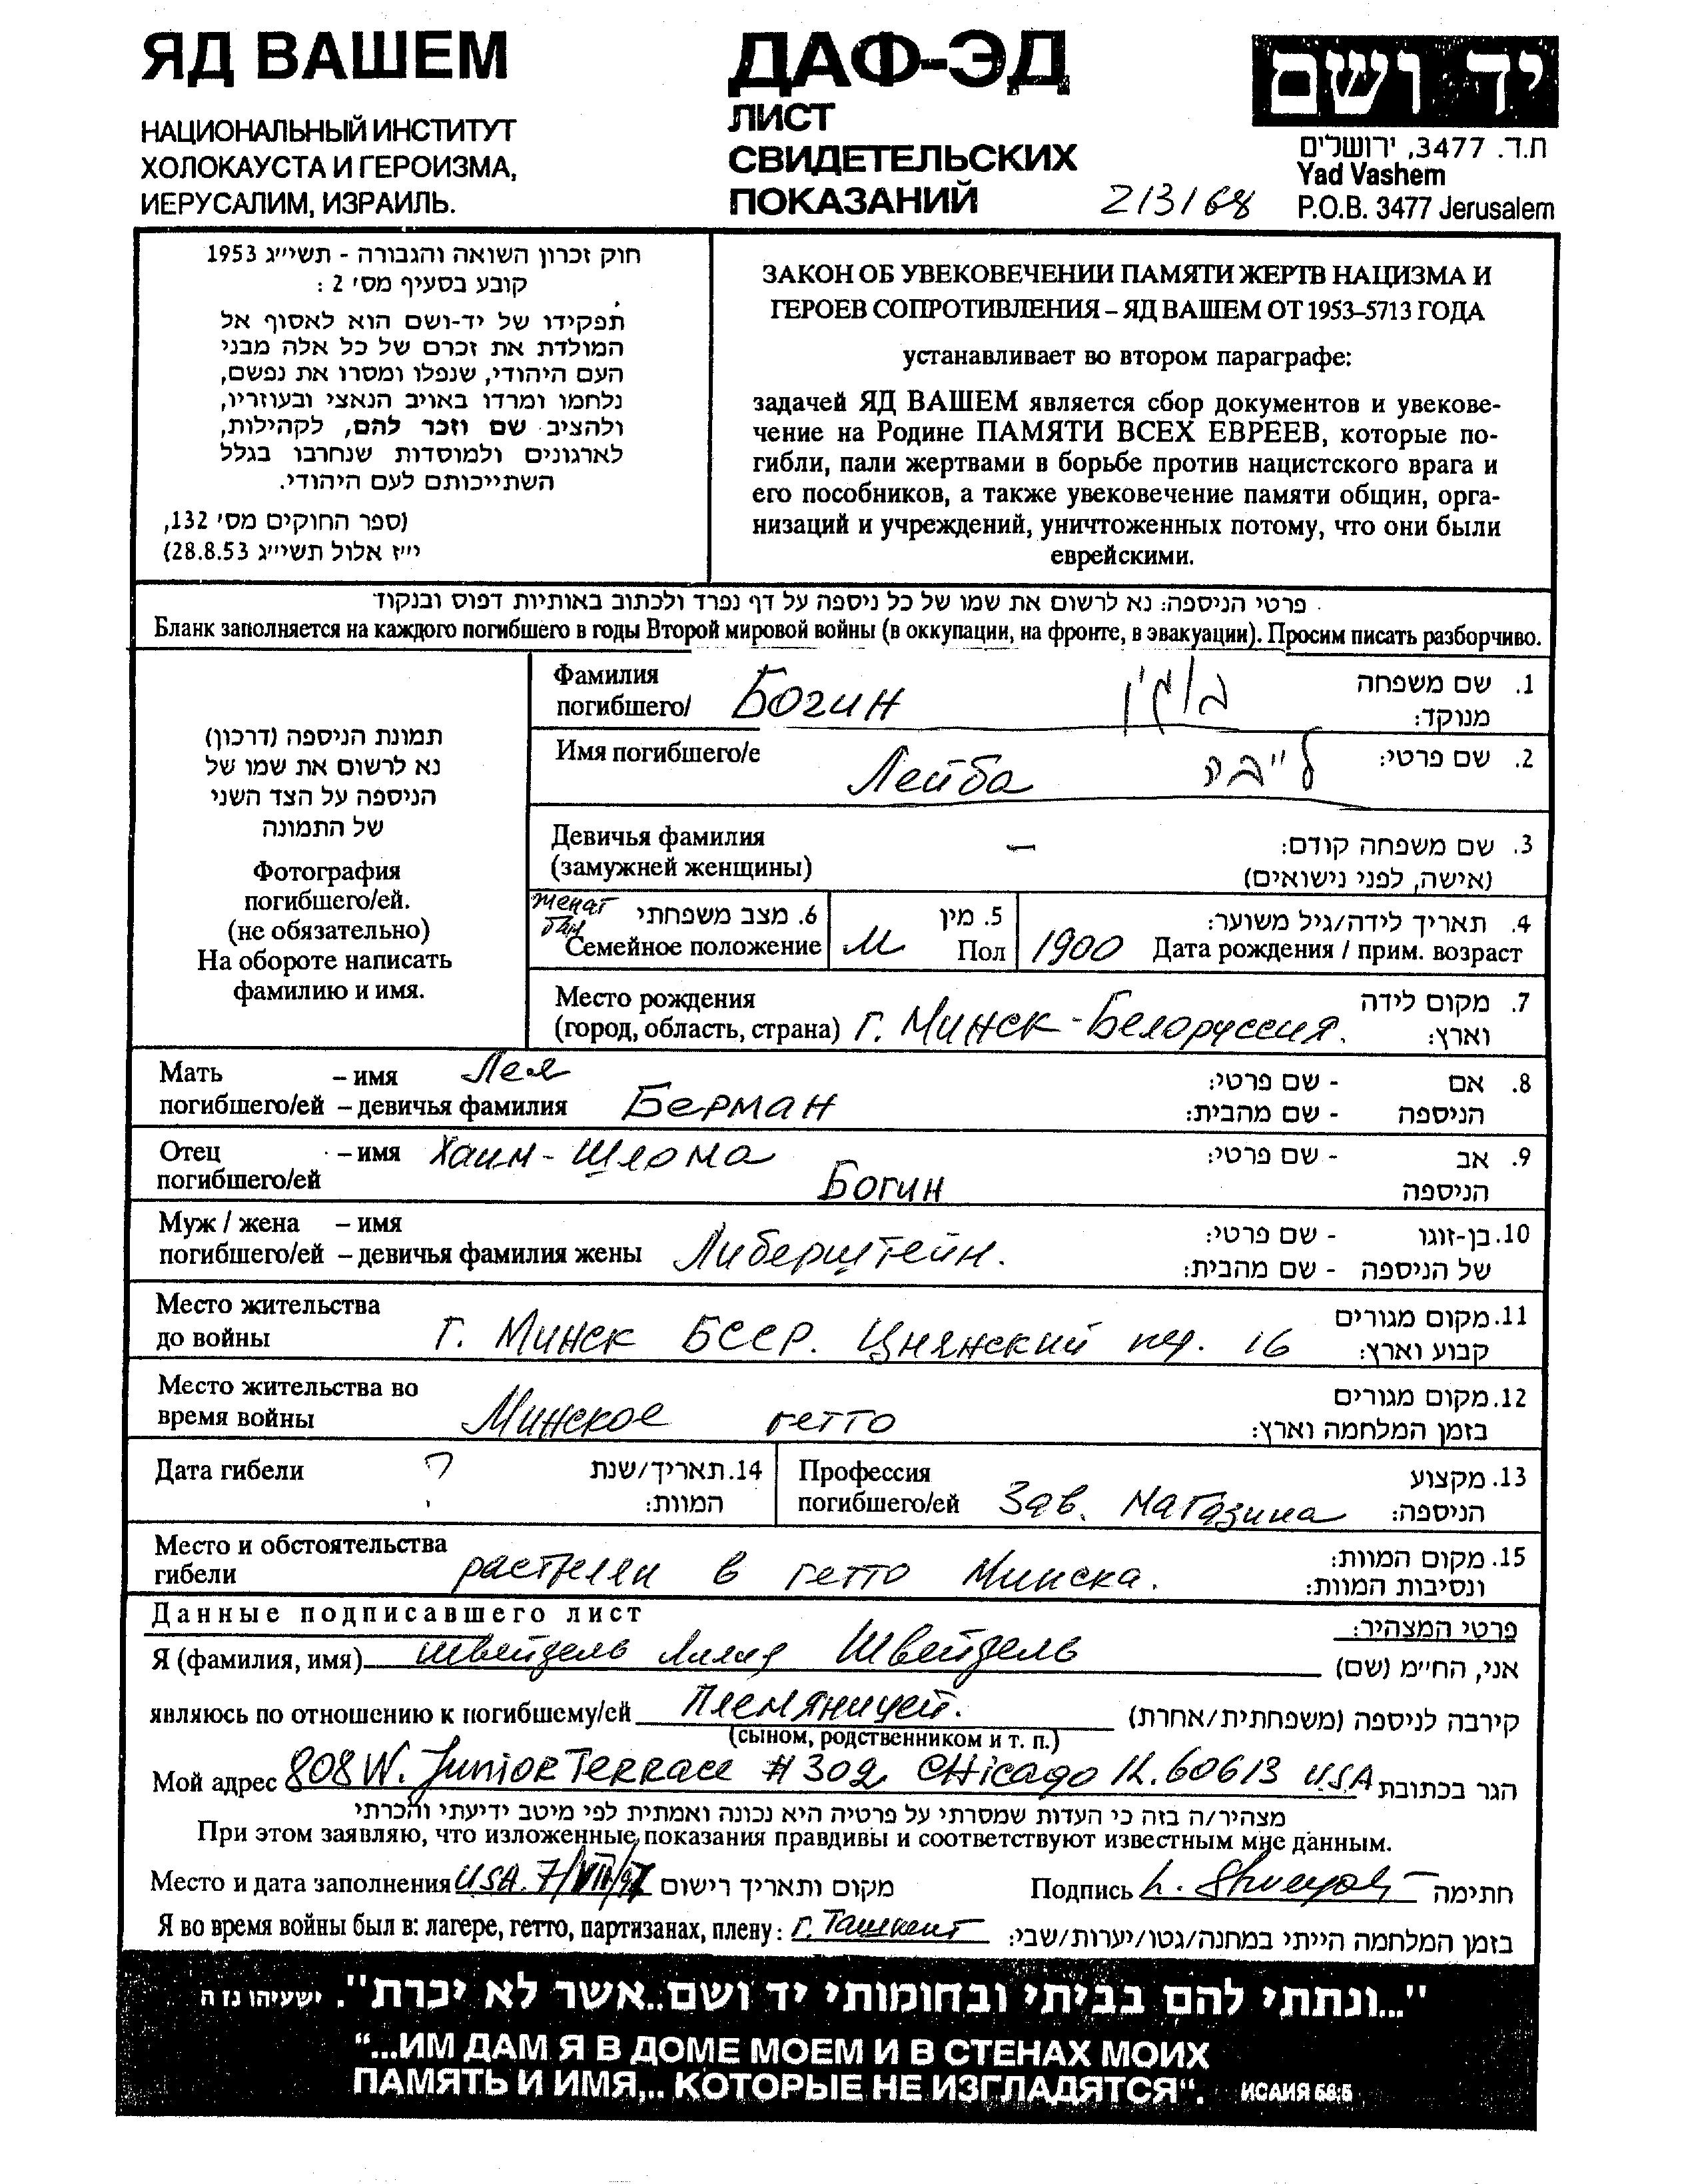 ЯД ВАШЕМ
НАЦИОНАЛЬНЫЙ ИНСТИТУТ
ХОЛОКАУСТА И ГЕРОИЗМА,
ИЕРУСАЛИМ, ИЗРАИЛЬ.
ДАФ-ЭД
ЛИСТ
СВИДЕТЕЛЬСКИХ
ПОКАЗАНИЙ
213168
יד ושם
ת.ד. 3477, ירושלים
Yad Vashem
P.O.B. 3477 Jerusalem
חוק זכרון השואה והגבורה - תשי״ג 1953
קובע בסעיף מס׳ 2 :
תפקידו של יד-ושם הוא לאסוף אל
המולדת את זכרם של כל אלה מבני
העם היהודי, שנפלו ומסרו את נפשם,
נלחמו ומרדו באויב הנאצי ובעוזריו,
ולהציב שם וזכר להם, לקהילות,
לארגונים ולמוסדות שנחרבו בגלל
השתייכותם לעם היהודי.
(ספר החוקים מס׳ 132,
י״ז אלול תשי״ג 28.8.53)
ЗАКОН ОБ УВЕКОВЕЧЕНИИ ПАМЯТИ ЖЕРТВ НАЦИЗМА И
ГЕРОЕВ СОПРОТИВЛЕНИЯ – ЯД ВАШЕМ ОТ 1953–5713 ГОДА
устанавливает во втором параграфе:
задачей ЯД ВАШЕМ является сбор документов и увекове-
чение на Родине ПАМЯТИ ВСЕХ ЕВРЕЕВ, которые по-
гибли, пали жертвами в борьбе против нацистского врага и
его пособников, а также увековечение памяти общин, орга-
низаций и учреждений, уничтоженных потому, что они были
еврейскими.
פרטי הניספה: נא לרשום את שמו של כל ניספה על דף נפרד ולכתוב באותיות דפוס ובנקוד
Бланк заполняется на каждого погибшего в годы Второй мировой войны (в оккупации, на фронте, в эвакуации). Просим писать разборчиво.
תמונת הניספה (דרכון)
נא לרשום את שמו של
הניספה על הצד השני
של התמונה
Фотография
погибшего/ей.
(не обязательно)
На обороте написать
фамилию и имя.
Фамилия
погибшего/ Богин בוגין
1. שם משפחה
מנוקד:
Имя погибшего/е Лейба לייבה 2. שם פרטי:
Девичья фамилия
(замужней женщины) –
3. שם משפחה קודם:
(אישה, לפני נישואים)
женат
был
6. מצב משפחתי
Семейное положение
М
5. מין
Пол
1900
4. תאריך לידה/גיל משוער:
Дата рождения / прим. возраст
Место рождения
(город, область, страна) г. Минск - Белоруссия.
7. מקום לידה
וארץ:
Мать – имя Лея
погибшего/ей – девичья фамилия Берман
8. אם - שם פרטי:
הניספה - שם מהבית:
Отец – имя Хаим-Шлома
погибшего/ей Богин
9. אב - שם פרטי:
הניספה
Муж / жена – имя
погибшего/ей – девичья фамилия жены Либерштейн.
10. בן-זוגו - שם פרטי:
של הניספה - שם מהבית:
Место жительства
до войны г. Минск БССР. Цнянский пер. 16
11. מקום מגורים
קבוע וארץ:
Место жительства во
время войны Минское гетто
12. מקום מגורים
בזמן המלחמה וארץ:
Дата гибели ?
14. תאריך/שנת
המוות:
Профессия
погибшего/ей Зав. Магазина
13. מקצוע
הניספה:
Место и обстоятельства
гибели в гетто Минска.
15. מקום המוות:
ונסיבות המוות:
Данные подписавшего лист
פרטי המצהיר:
Я (фамилия, имя) Швейдель Лилия Швейдель אני, החי״מ (שם)
являюсь по отношению к погибшему/ей Племяницей. קירבה לניספה (משפחתית/אחרת)
(сыном, родственником и т. п.)
Мой адрес 808 W. Junior Terrace # 302 Chicago IL. 60613 USA הגר בכתובת
מצהיר/ה בזה כי העדות שמסרתי על פרטיה היא נכונה ואמתית לפי מיטב ידיעתי והכרתי
При этом заявляю, что изложенные показания правдивы и соответствуют известным мне данным.
Место и дата заполнения USA. 7/VII/97 מקום ותאריך רישום Подпись חתימה
Я во время войны был в: лагере, гетто, партизанах, плену: г. Ташкент בזמן המלחמה הייתי במחנה/גטו/יערות/שבי:
"...ונתתי להם בביתי ובחומותי יד ושם..אשר לא יכרת". ישעיהו נז ה
“...ИМ ДАМ Я В ДОМЕ МОЕМ И В СТЕНАХ МОИХ
ПАМЯТЬ И ИМЯ,.. КОТОРЫЕ НЕ ИЗГЛАДЯТСЯ“. ИСАИЯ 56:5